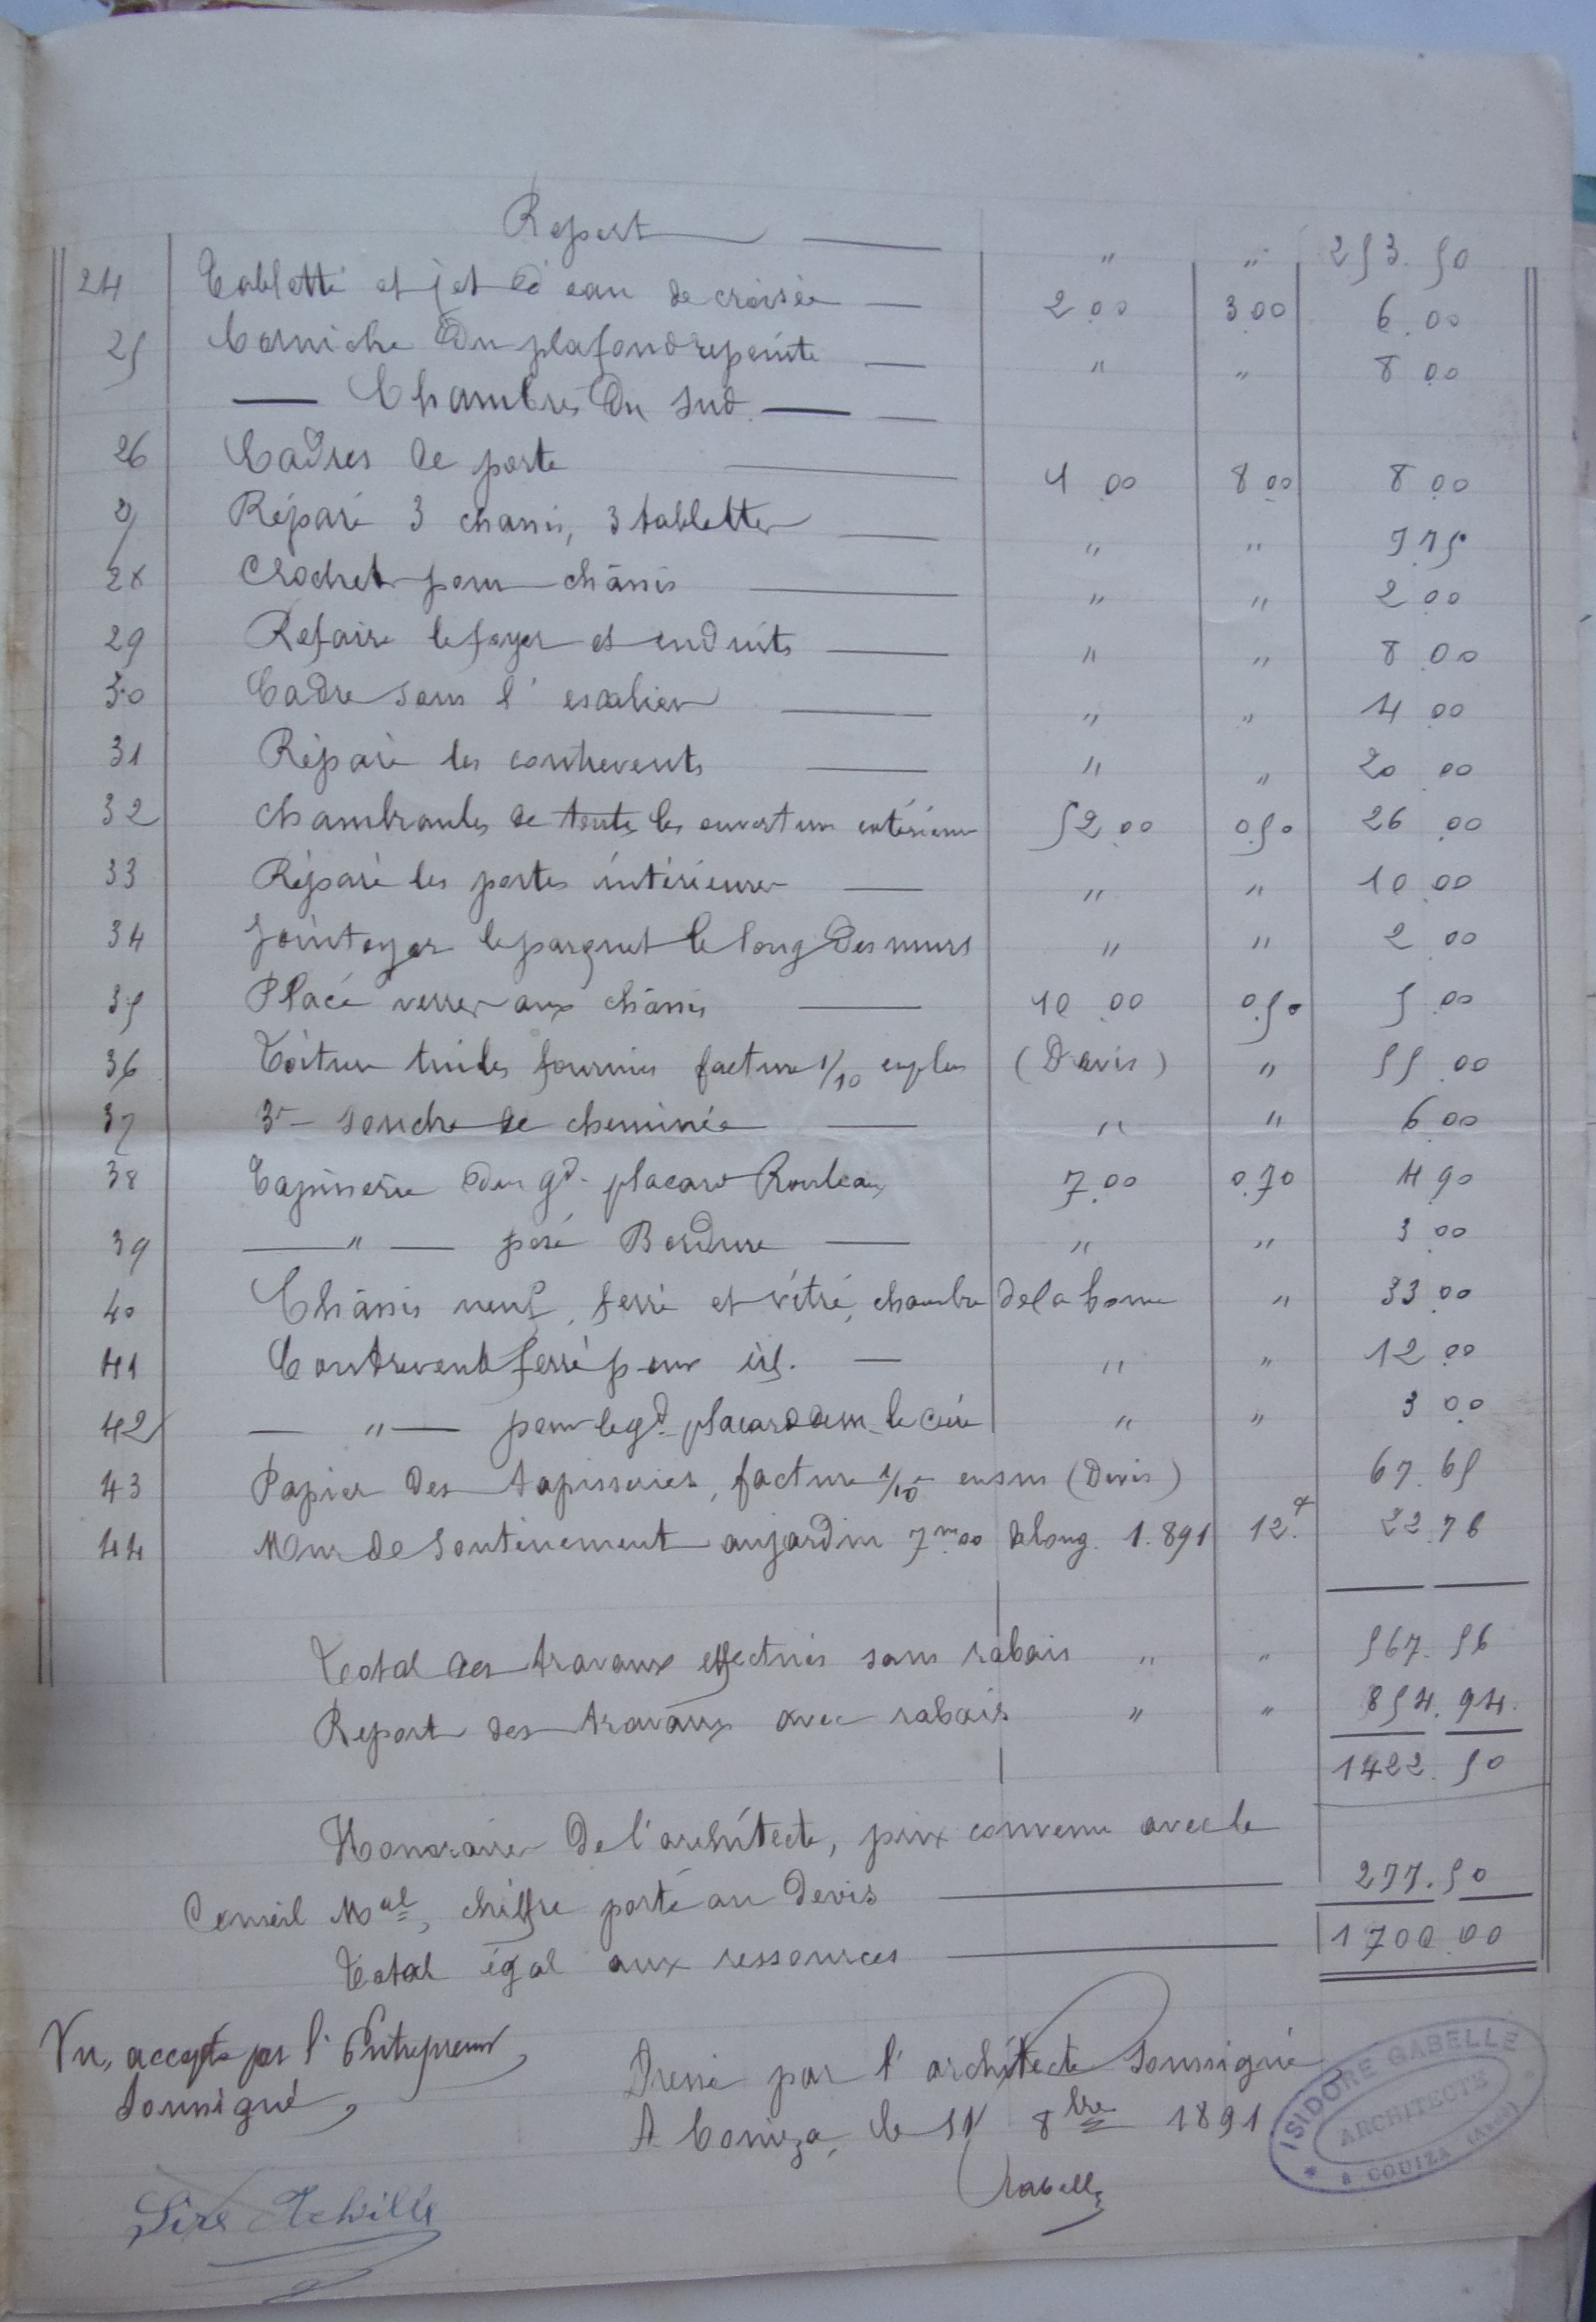 Report " " 253.50
24 Tablette et jet d'eau de croisée 2.00 3.00 6.00
25 Corniche du plafond repeinte " " 8.00
Chambres du Sud
26 Cadres de porte 1.00 8.00 8.00
27 Réparé 3 chassis, 3 tablettes " " 9.75
28 Crochets pour châssis " " 2.00
29 Refaire le foyer et enduits " " 8.00
30 Cadre sous l'escalier " " 4.00
31 Réparé les contrevents " " 20.00
32 Chambranles de toutes les ouvertures extérieures 52.00 0.50 26.00
33 Réparé les portes intérieures " " 10.00
34 Jointoyer le parquet le long des murs " " 2.00
35 Placé verres aux châssis 10.00 0.50 5.00
36 Toiture tuiles fournies facture 1/10 en plus (Devis) " 55.00
37 3e souche de cheminée " " 6.00
38 Tapisserie du gd placard Rouleaux 7.00 0.70 4.90
39 " posé Bordure " " 3.00
40 Châssis neuf, ferré et vitré, chambre de la bonne " 33.00
41 Contrevent ferré pour id. " " 12.00
42 " pour le gd placard " " 3.00
43 Papier des tapisseries, facture 1/10e en sus (Devis) 67.65
44 Mur de soutènement au jardin 7m00 de long. 1.891 12.f 22.76
Total des travaux effectués sans rabais " " 567.56
Report des travaux avec rabais " " 854.94.
1422.50
Honoraires de l'architecte, prix convenu avec le
Conseil Mal, chiffre porté au Devis 277.50
Total égal aux ressources 1700.00
Vu, accepté par l'Entrepreneur
soussigné,
Dressé par l'architecte soussigné
A Couiza, le 8bre 1891
Gabelle
Achille
ISIDORE GABELLE
ARCHITECTE
à COUIZA (Aude)